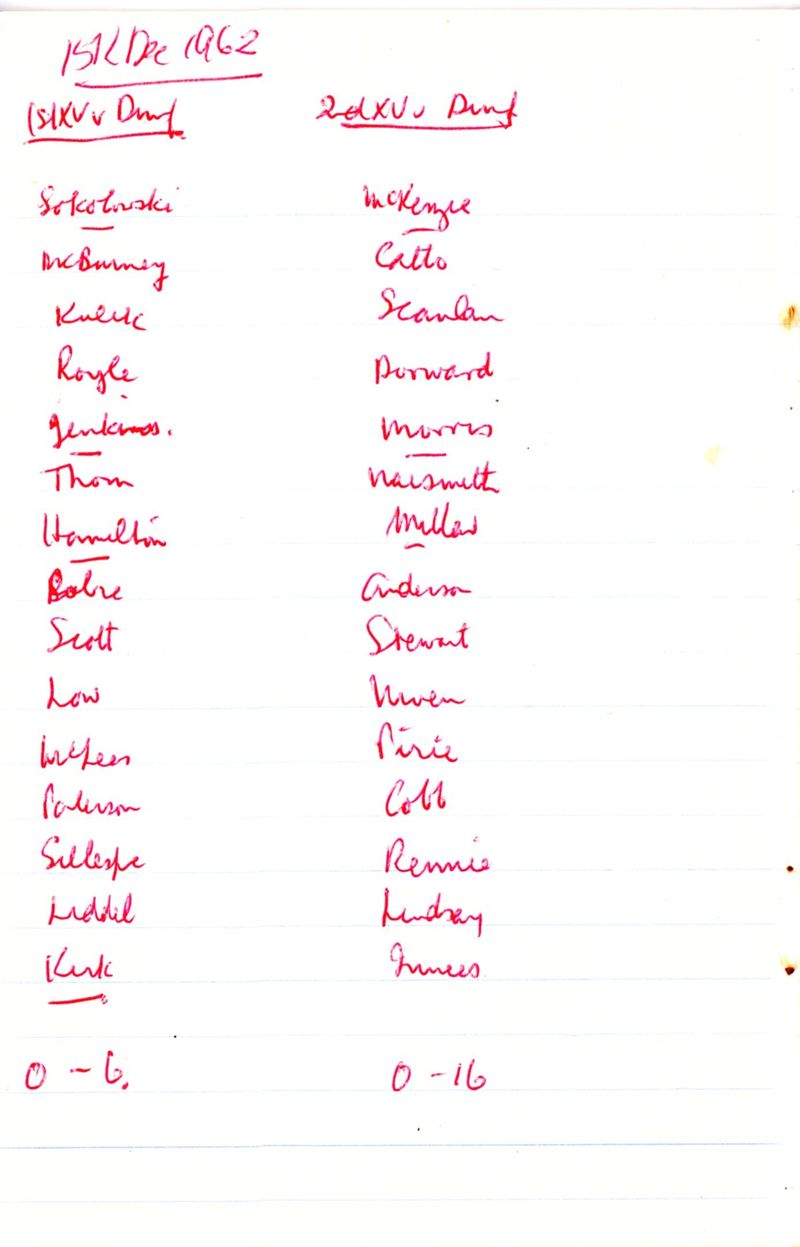 15th Dec 1962
1st XV v Dunf 2nd XV v Dunf
Sokolowski McKenzie
McBurney Catto
Kulik Scanlan
Royle Dorward
Jenkins. Morris
Thom Naismith
Hamilton Millar
Anderson
Scott Stewart
Low Niven
McLees Pirie
Paterson Cobb
Gillespie Rennie
Liddel Lindsay
Kirk Innes
0 - 6. 0 - 16